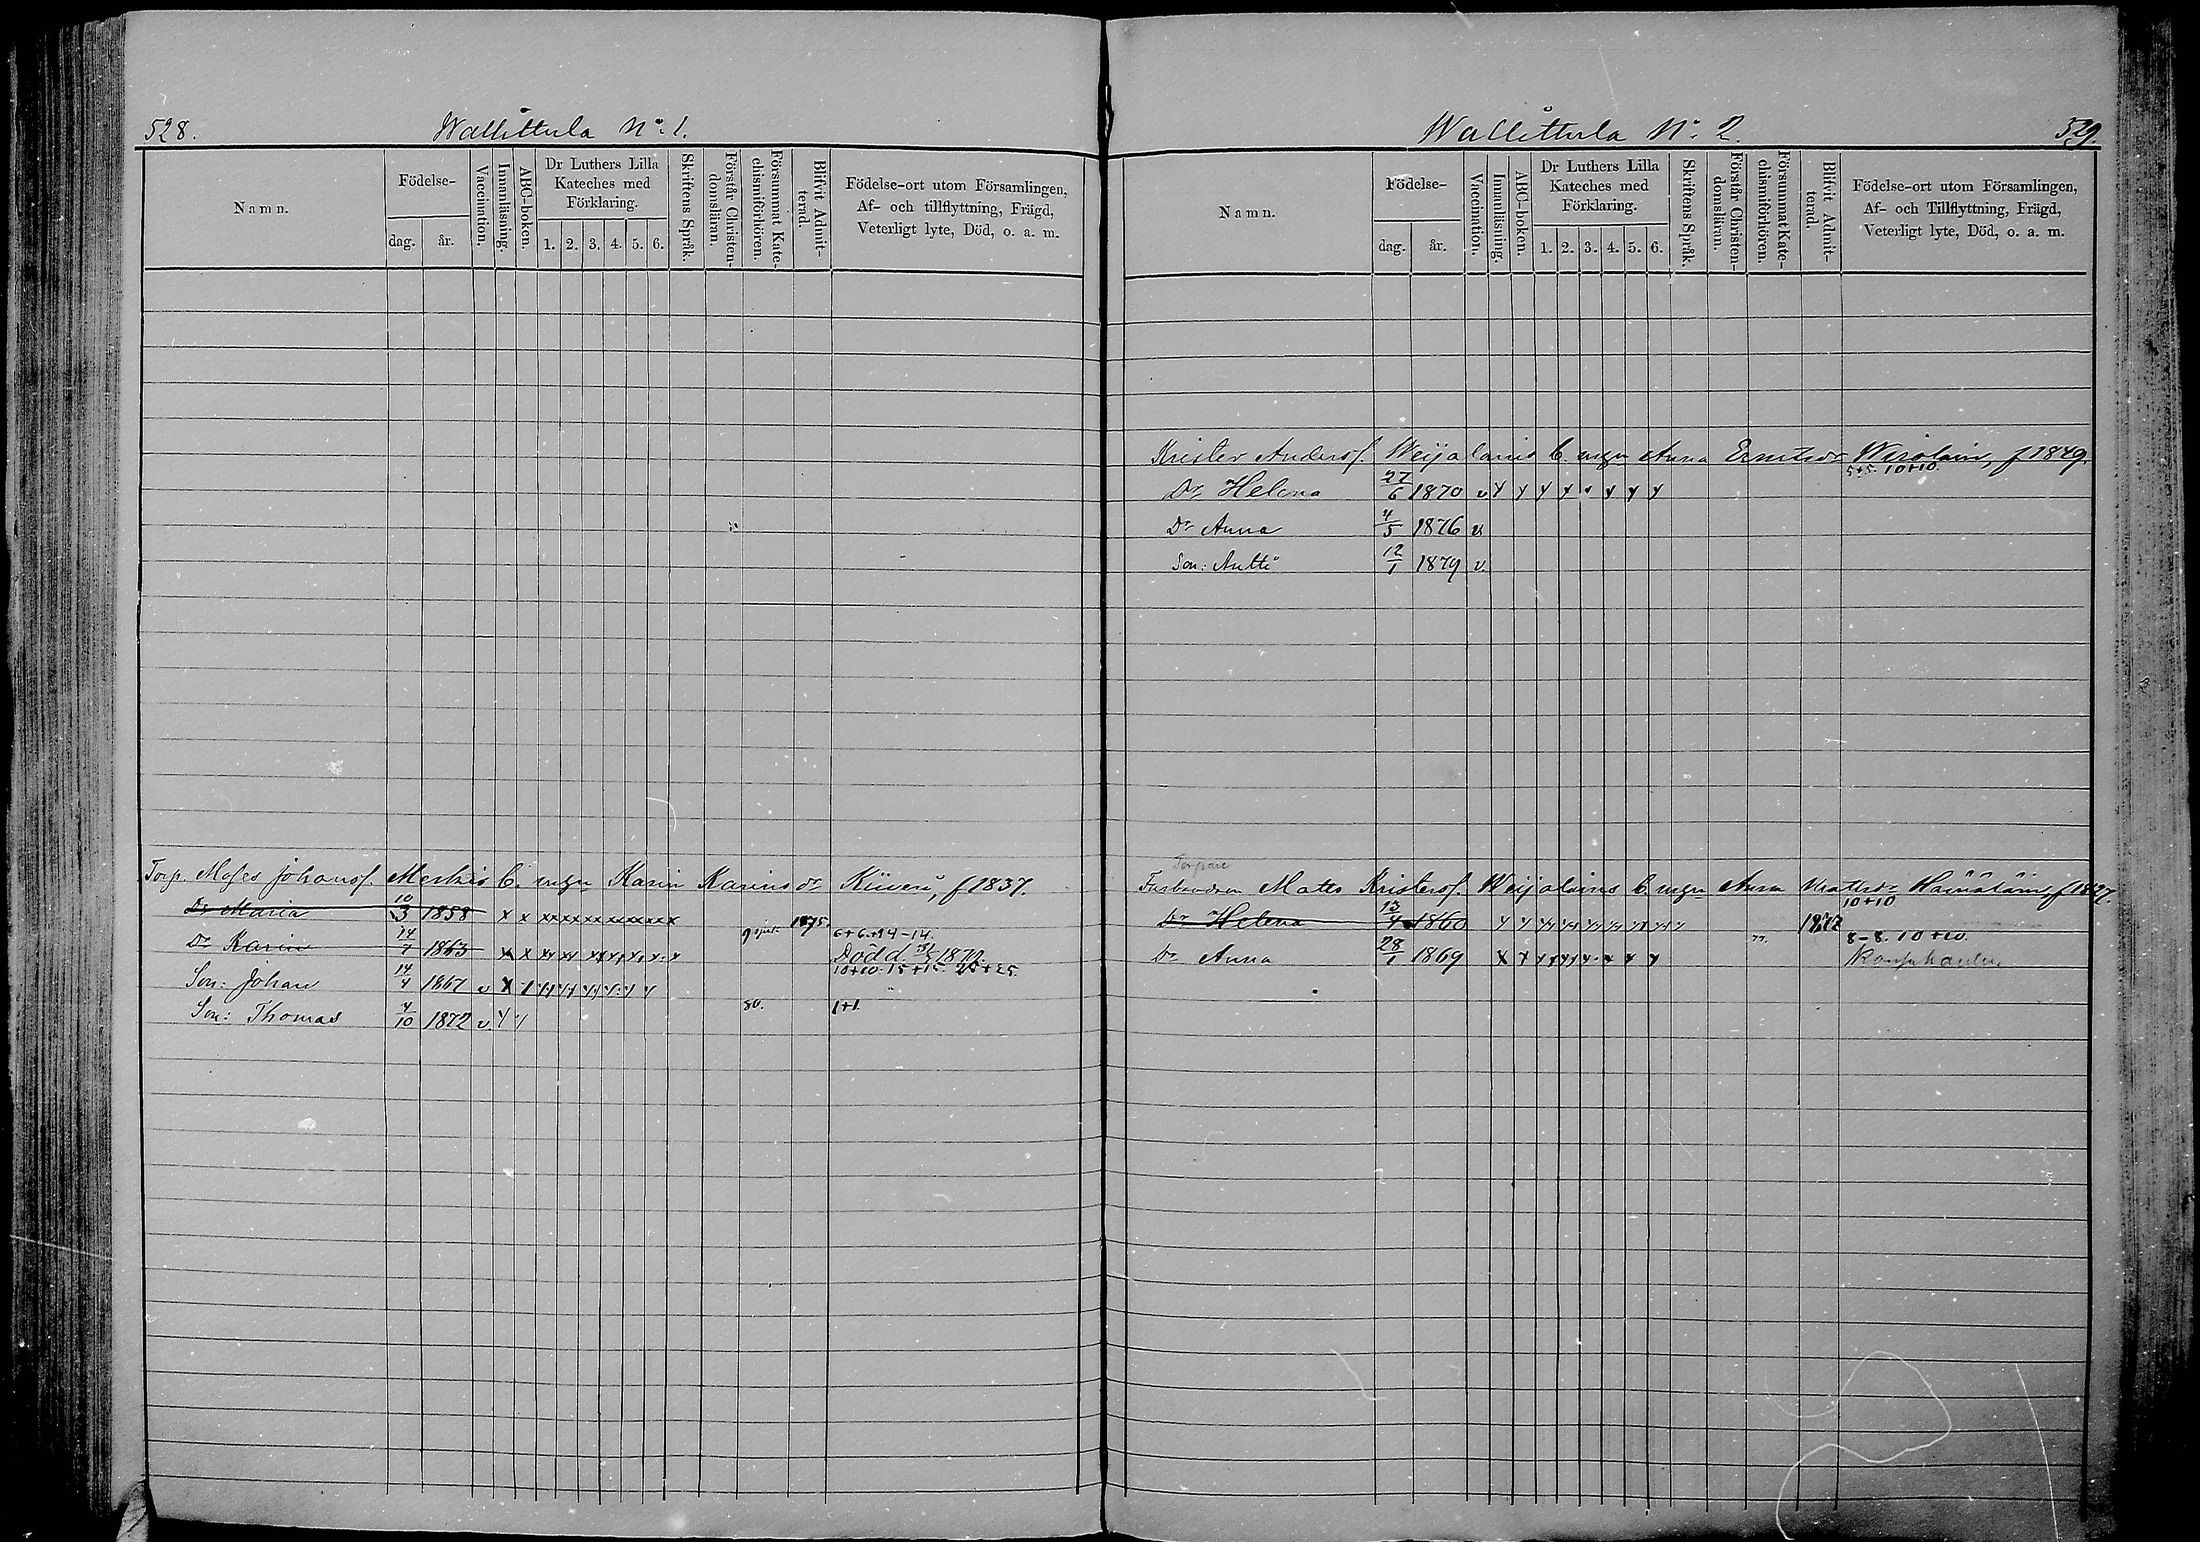 528.
Wallittula No. 1.
Namn.
Födelse-
dag.
år.
Vaccination.
Innanläsning.
ABC-boken.
Dr Luthers Lilla
Kateches med
Förklaring.
1. 2. 3. 4. 5. 6.
Skriftens Språk.
Förstår Christen-
domsläran.
Försummat Kate-
chismiförhören.
Blifvit Admit-
terad.
Födelse-ort utom Församlingen,
Af- och tillflyttning, Frägd,
Veterligt lyte, Död, o. a. m.
Torp. Moses Johansf. Merkis h. mgn Karin Karinsdr Kiiveri, f 1837.
Dr Maria 10/3 1858 x x xx xx xx xx xx xx x 1875.
6+6.+14-14.
Dr Karin 14/7 1863 Död d. 1879.
10+10. 15+15. 25+25.
Son: Johan 14/4 1867 v
80. 1+1.
Son: Thomas 4/10 1872 v.
529.
Wallittula No. 2.
Namn.
Födelse-
dag.
år.
Vaccination.
Innanläsning.
ABC-boken.
Dr Luthers Lilla
Kateches med
Förklaring.
1. 2. 3. 4. 5. 6.
Skriftens Språk.
Förstår Christen-
domsläran.
Försummat Kate-
chismiförhören.
Blifvit Admit-
terad.
Födelse-ort utom Församlingen,
Af- och Tillflyttning, Frägd,
Veterligt lyte, Död, o. a. m.
Krister Andersf. Weijalanis h. mgn Anna Wirolain, f 1849.
5+5. 10+10.
Dr Helena 27/6 1870 v
Dr Anna 4/5 1876 v
Son: Antti 12/1 1879 v.
Torpare
Farbrodren Matts Kristersf. Weijalains h. mgn Anna Mattsdr Hämäläin, f 1827.
10+10
Dr Helena 13/4 1860 1877
77. 8-8. 10+10.
Dr Anna 28/1 1869